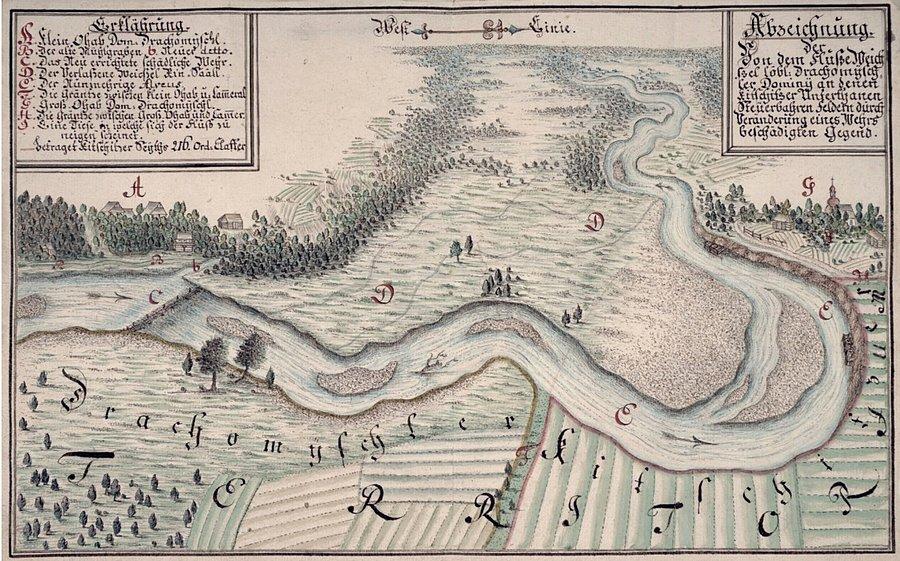 Erklährung.
A. Klein Ohab Dom. Drachomÿschl.
B. Der alte Mühlgraben b. Neuer detto.
C. Das Neu errichtete schädliche Wehr.
D. Der Verlassene Weichsel Rin Saall.
E. Der Nunmehrige
F. Die Gräntze zwischen Klein Ohab u. Cameral
G. Groß Ohab Dom. Drachomÿschl.
H. Die Gräntze zwischen Groß Ohab und Camer.
I. Eine Tiefe in welche sich der Fluß zu
neigen scheinet.
betraget Kitschitzer Seyths 216. Ord. Claffter
West Linie.
Abzeichnung.
der
Von dem Fluße Weich
ssel löbl. Drachomÿsch
ler Dominÿ an denen
Kitschitser Unterthanen
Steuerbahren Feldern durch
Veränderung eines Wehrs
beschädigten Gegend.
A
G
D
D
a
b
C
E
H
E
Drachomÿschler
Kitschitzer
TERRITOR